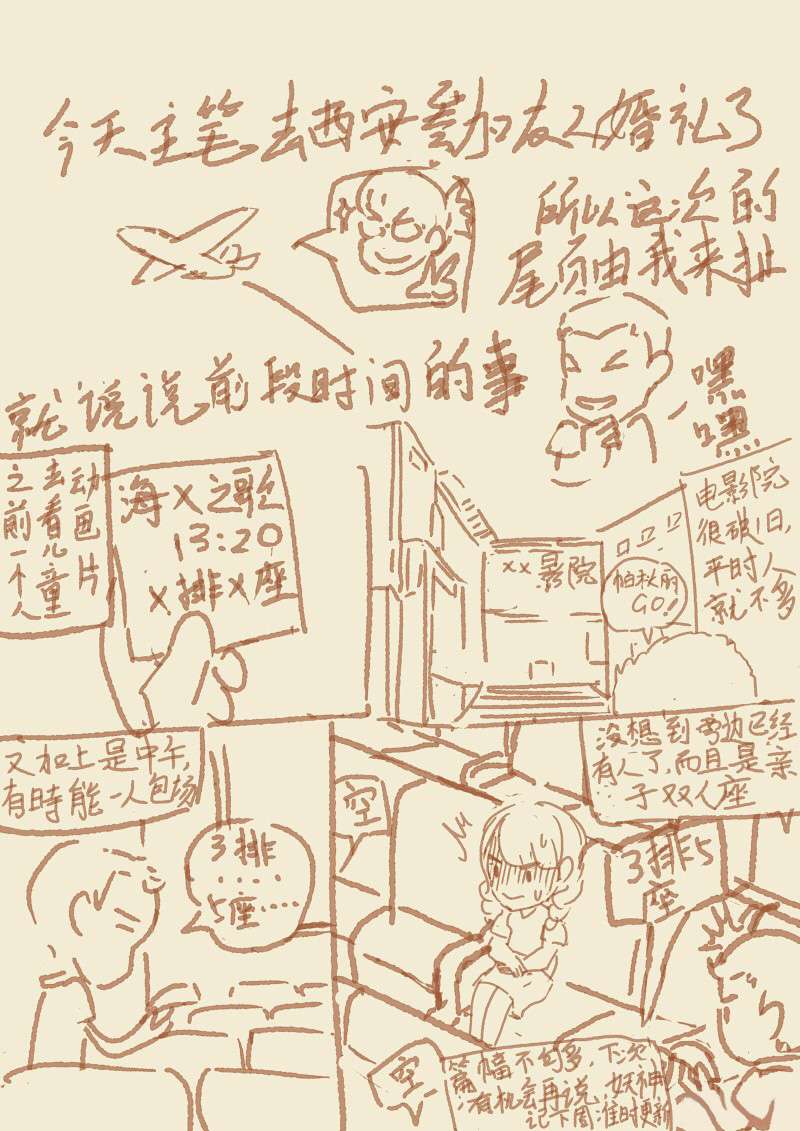 今天主笔去西安参加友人婚礼了
所以这次的
尾页由我来扯
就说说前段时间的事
嘿
嘿
之前一个人
去看儿童
动画片
海X之歌
13:20
X排X座
xx影院
帕秋丽
GO!
电影院
很破旧,
平时人
就不多
又加上是中午,
有時能一人包场
3排
····
5座·····
没想到旁边已经
有人了,而且是亲
子双人座
空
3排5
座
空
篇幅不够多,下次
有机会再说,妖神
记下周准时更新